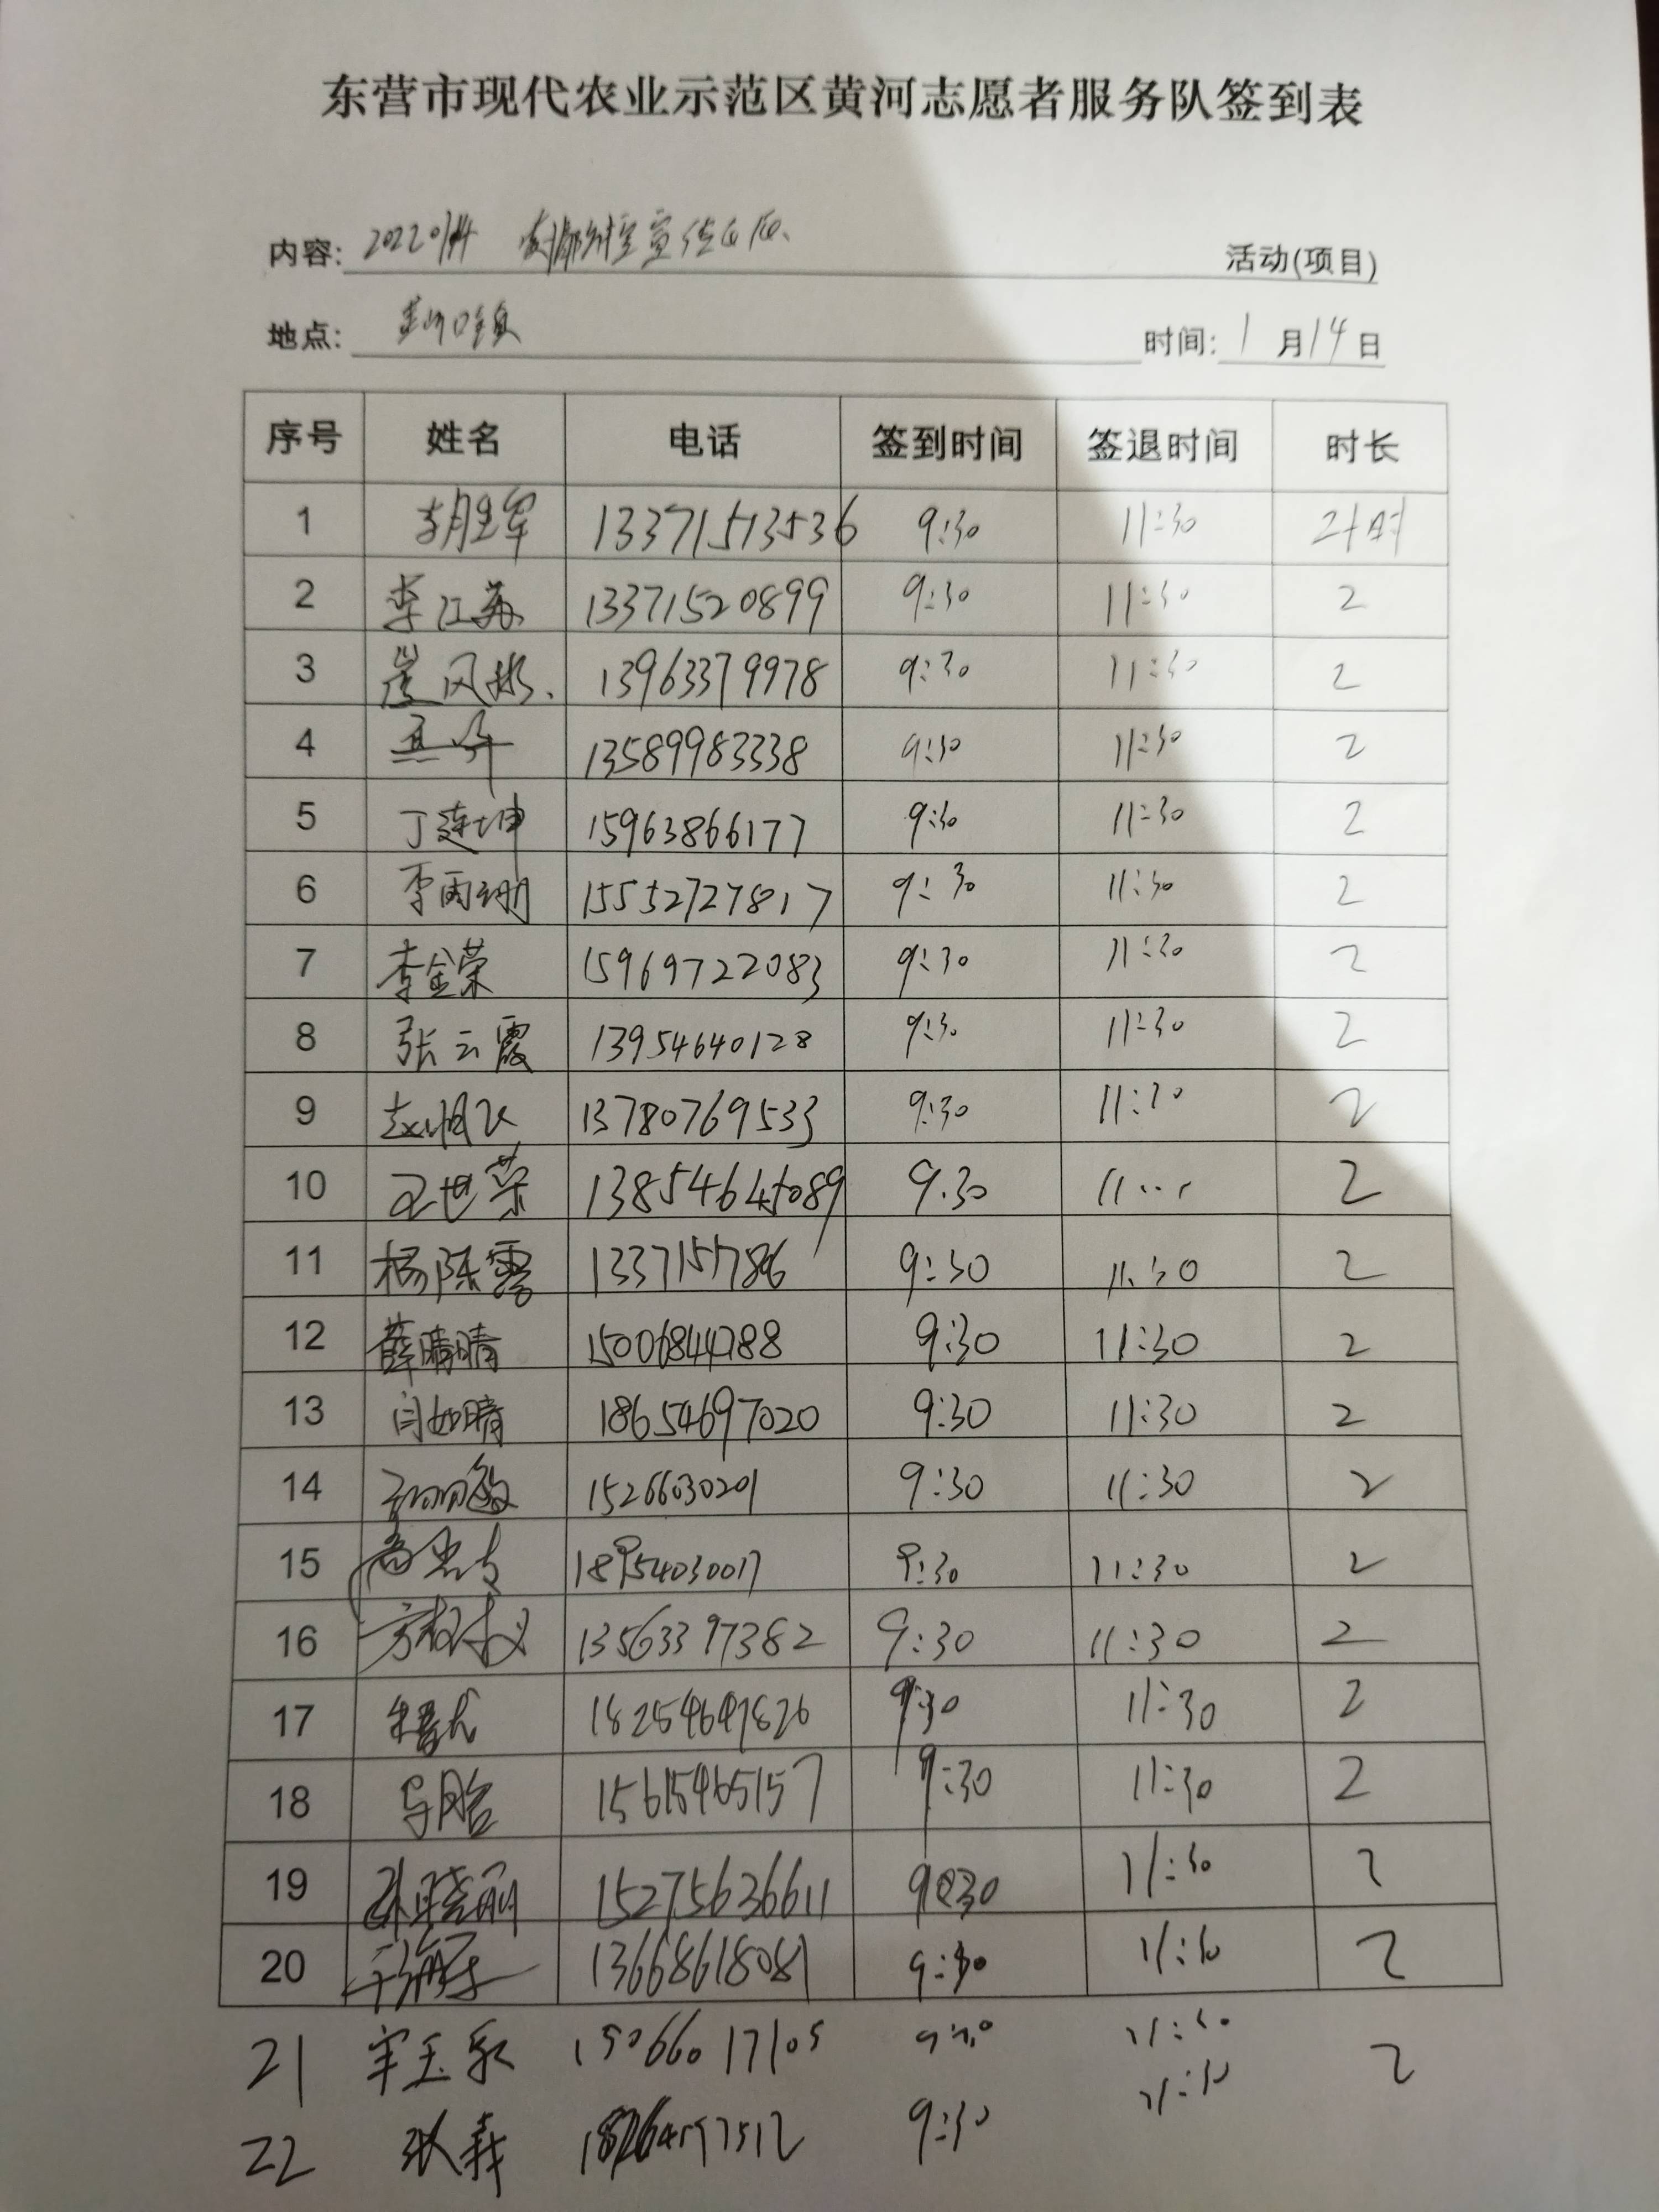 东营市现代农业示范区黄河志愿者服务队签到表
内容: 2022 宣传 活动(项目)
地点: 时间: 1 月 14 日
序号 姓名 电话 签到时间 签退时间 时长
1 李胜军 13371513536 9:30 11:30 2小时
2 李江苏 13371520899 9:30 11:30 2
3 崔风 13963379978 9:30 11:30 2
4 13589983338 9:30 11:30 2
5 丁连坤 15963866177 9:30 11:30 2
6 李雨珊 15552727817 9:30 11:30 2
7 李金荣 15969722083 9:30 11:30 2
8 张云霞 13954640128 9:30 11:30 2
9 赵 13780769533 9:30 11:30 2
10 王世荣 13854645089 9.30 2
11 杨陈露 9:30 11:30 2
12 薛晴晴 15006844788 9:30 11:30 2
13 闫如晴 18654697020 9:30 11:30 2
14 15266030201 9:30 11:30 2
15 18954030017 9:30 11:30 2
16 13563397382 9:30 11:30 2
17 18254647826 9:30 11:30 2
18 15615465157 9:30 11:30 2
19 孙晓丽 15275636611 9:30 11:30 2
20 13668618081 9:30 11:30 2
21 15066017105 9:30 11:30 2
22 张 9:30 11:30